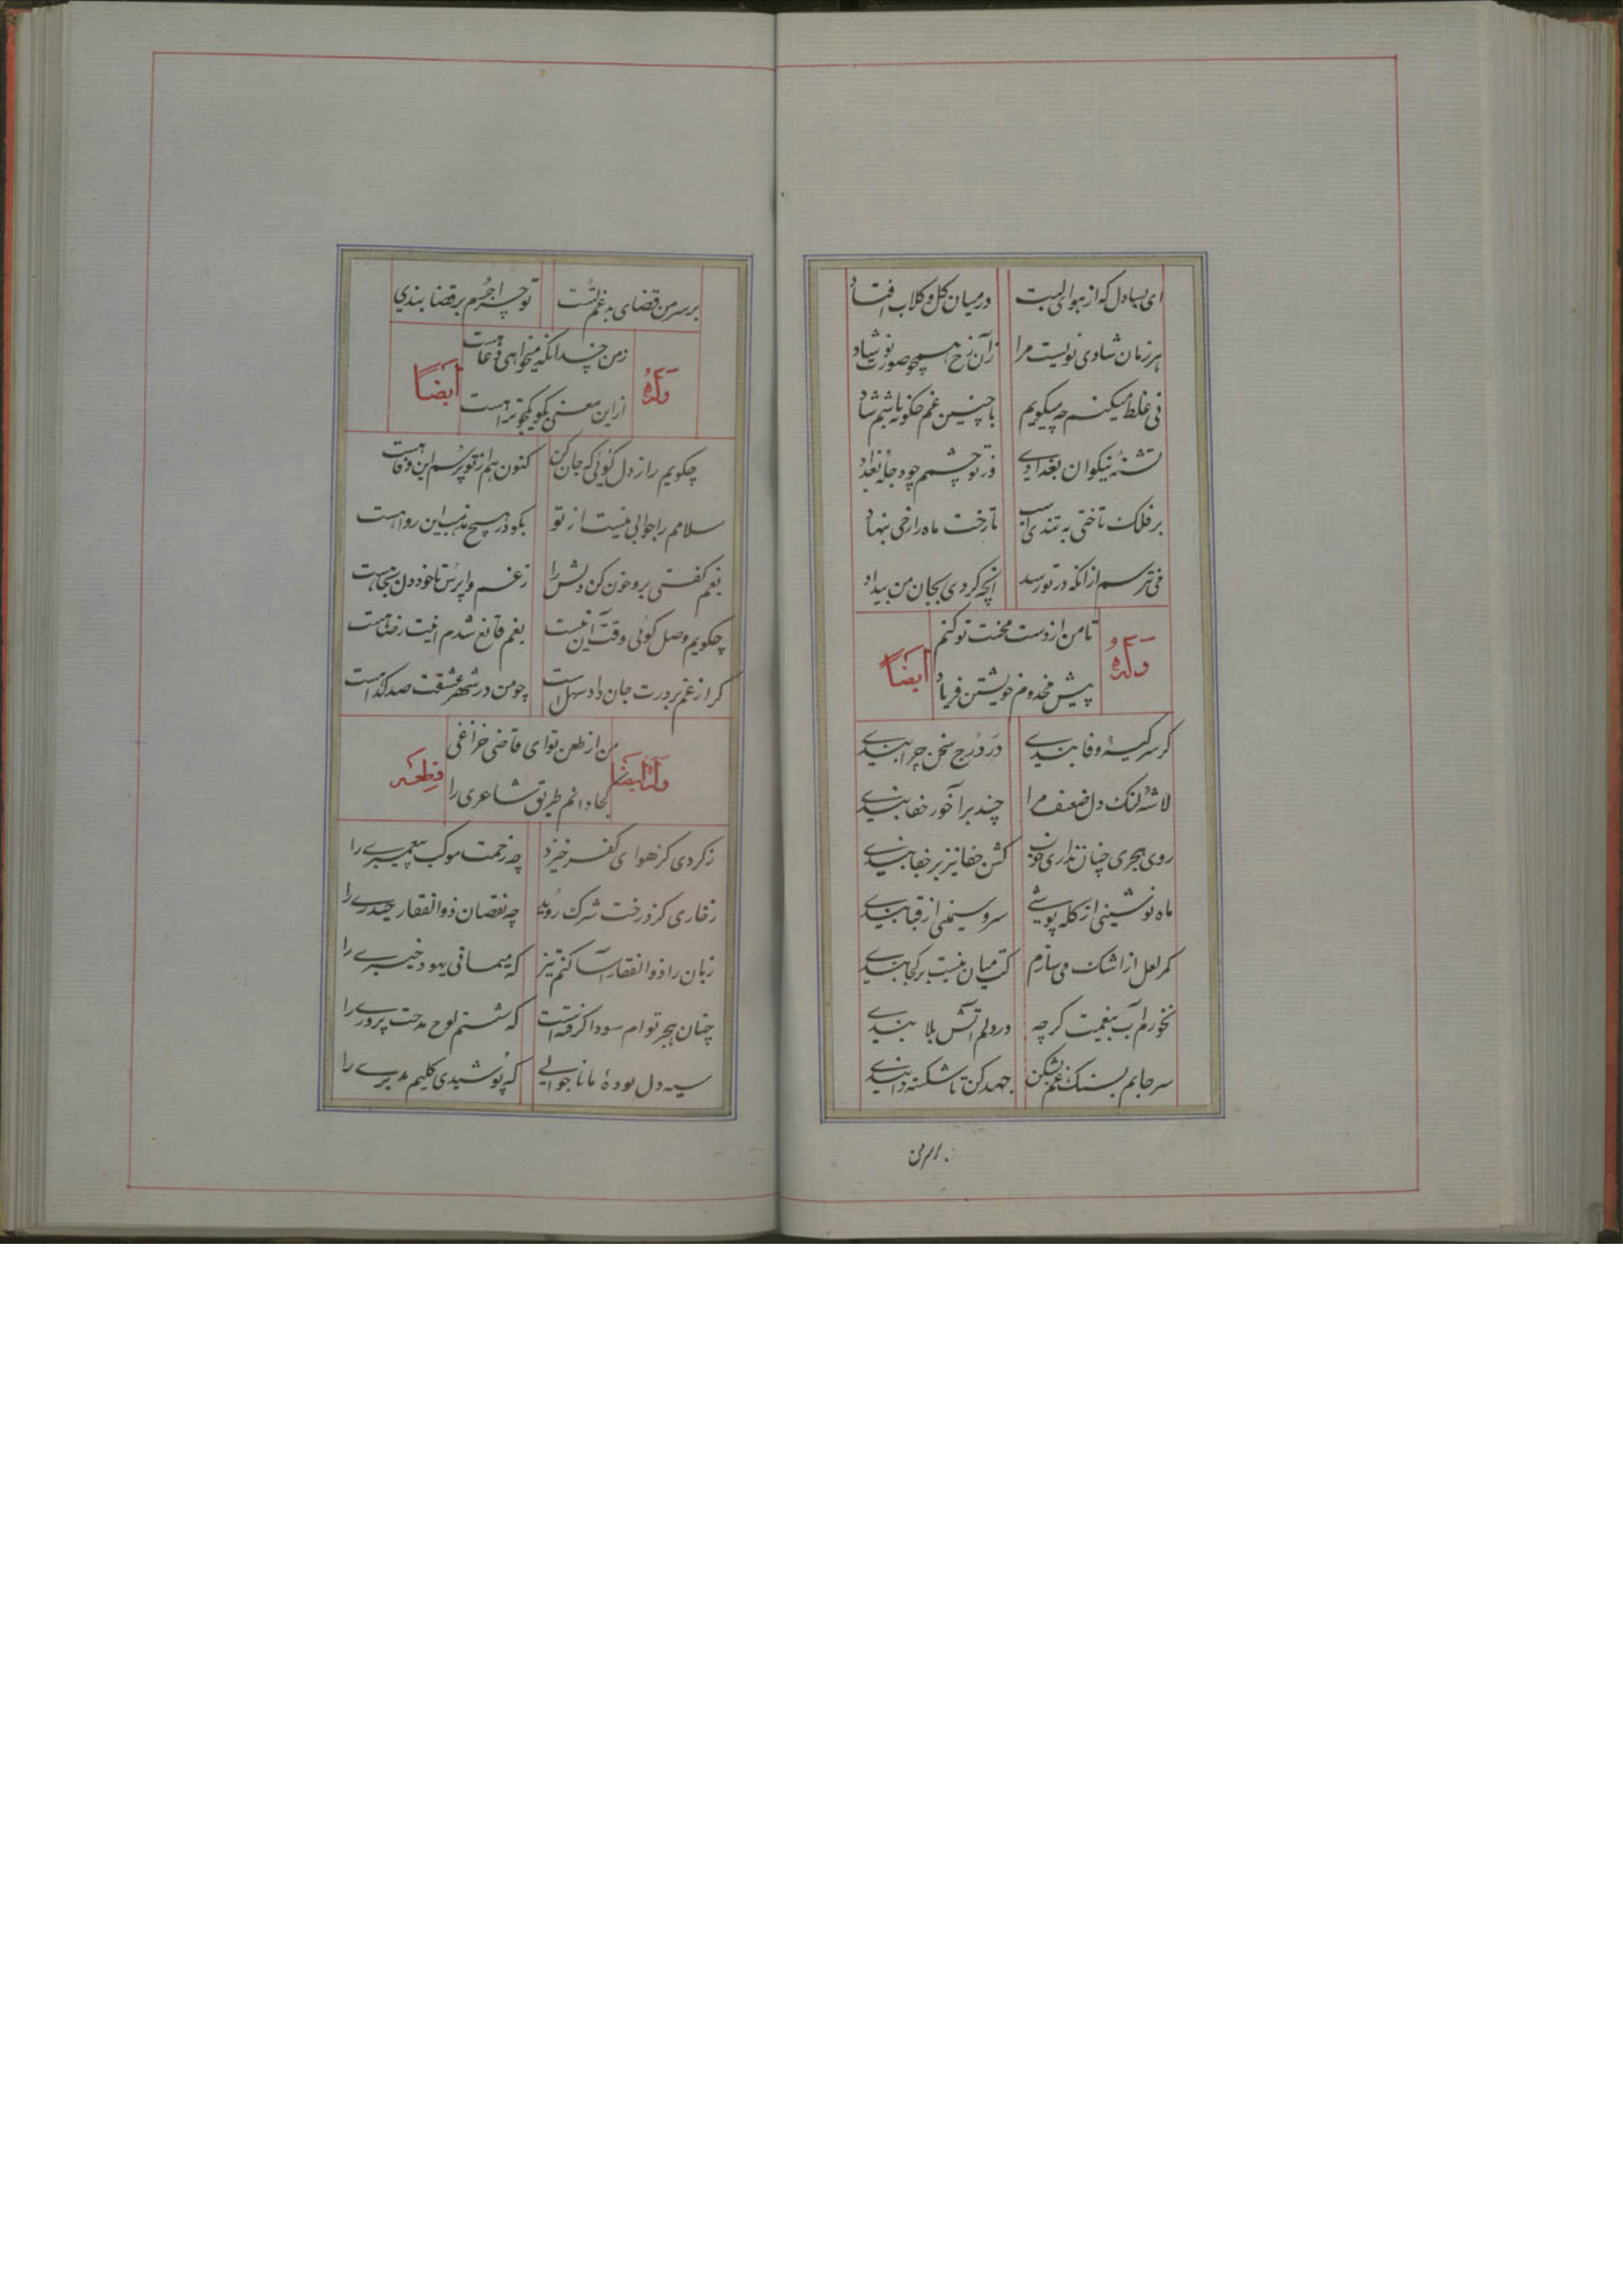 ای بسا دل که از هوای لبت در میان گل و گلاب افتاد
هر زمان شادی نویست مرا زان رخ همچو صورت نوشاد
نی غلط میکنم چه میگویم با چنین غم چگونه باشم شاد
تشنهٔ نیکوان بغدادی در تو چشم چو دجلهٔ بغداد
بر فلک تاختی به تندی اسب تا رخت ماه را رخی بنهاد
می ترسم از آنکه در تو رسد آنچه کردی بجان من بیداد
وله تا من از دست محنت تو کنم ایضاً
پیش مخدوم خویشتن فریاد
گر سر کیسهٔ وفا بندی در درج سخن چرا بندی
لاشهٔ لنگ دل ضعف مرا چند بر آخور جفا بندی
روی هجری چنان نداری خوب کش جفا نیز بر جفا بندی
ماه نو شینی از کله پوشی سرو سیمینی از قبا بندی
کمر لعل از اشک می سازم کت میان نیست بر کجا بندی
نخورم آب بیغمت گرچه در دلم آتش بلا بندی
سر جایم بسنگ غم بشکن جهد کن تا شکسته وا بندی
بر سر من
بر سر من قضای بد غم تست تو چرا جرم بر قضا بندی
وله ز من چندانکه میخواهی دعا هست ایضاً
از این معنی بگو هیچت ترا هست
چگویم راز دل گوئی که جان کن کنون هم از تو پرسم این وفا هست
سلامم را جوابی نیست از تو بگو در هیچ مذهب این روا هست
بغم گفتی برو خون کن دلش را ز غم واپرس تا خود دل بجا هست
چگویم وصل گوئی وقت آن نیست بغم قانع شدم اینت رضا هست
گر از غم بر درت جان داد سهل است چو من در شهر عشقت صد گدا هست
وله ایضا من از طعن تو ای قاضی خزاعی قطعه
کجا دانم طریق شاعری را
ز گردی کز هوای کفر خیزد چه زحمت موکب پیغمبری را
ز خاری کز درخت شرک روید چه نقصان ذوالفقار حیدری را
زبان را ذوالفقار آسا کنم تیز که میمانی یهود خیبری را
چنان هجر توام سودا گرفته است که شستم لوح مدحت پروری را
سیه دل بودهٔ مانا جوابی که پوشیدی گلیم مدبری را